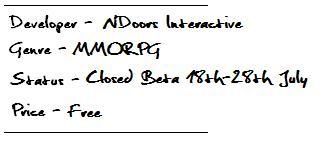 Developer - NDoors Interactive
Genre - MMORPG
Status - Closed Beta 18th-28th July
Price - Free